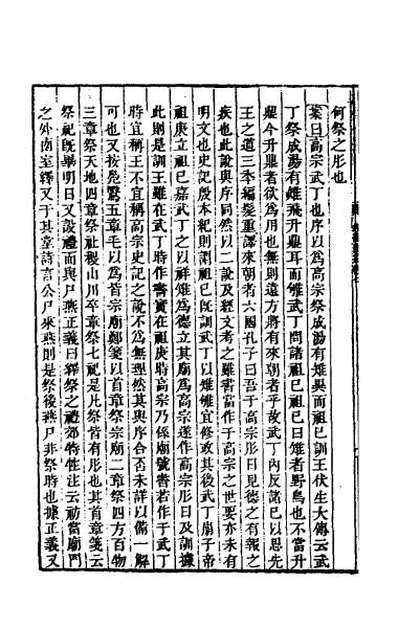 何祭之肜也
案曰高宗武丁也序以爲高宗祭成湯有雉異而祖已訓王伏生大傳云武
丁祭成湯有雉飛升鼎耳而雊武丁問諸祖已祖已曰雉者野鳥也不當升
鼎今升鼎者欲爲用也無則遠方將有來朝者乎故武丁内反諸已以思先
王之道三季編髮重譯來朝者六國孔子曰吾于高宗肜日見德之有報之
疾也此說與序同然以二說及經文考之雖書當作于高宗之世要亦未有
明文也史記殷本紀則謂祖已旣訓武丁以雉雊宜修政其後武丁崩子帝
祖庚立祖已嘉武丁之以祥雉爲德立其廟爲高宗遂作高宗肜日及訓據
此則是訓王雖在武丁時作書實在祖庚時高宗乃係廟號書若作于武丁
時宜稱王不宜稱高宗史記之說不爲無理然其與序合否未詳以備一解
可也又按鳧鷖五章毛以爲皆宗廟鄭箋以首章祭宗廟二章祭四方百物
三章祭天地四章祭社稷山川卒章祭七祀是凡祭皆有肜也其首章箋云
祭祀旣畢明日又設禮而與尸燕正義曰繹祭之禮郊特牲注云祊當廟門
之外西室繹又于其堂詩言公尸來燕則是祭後燕尸非祭時也據正義又